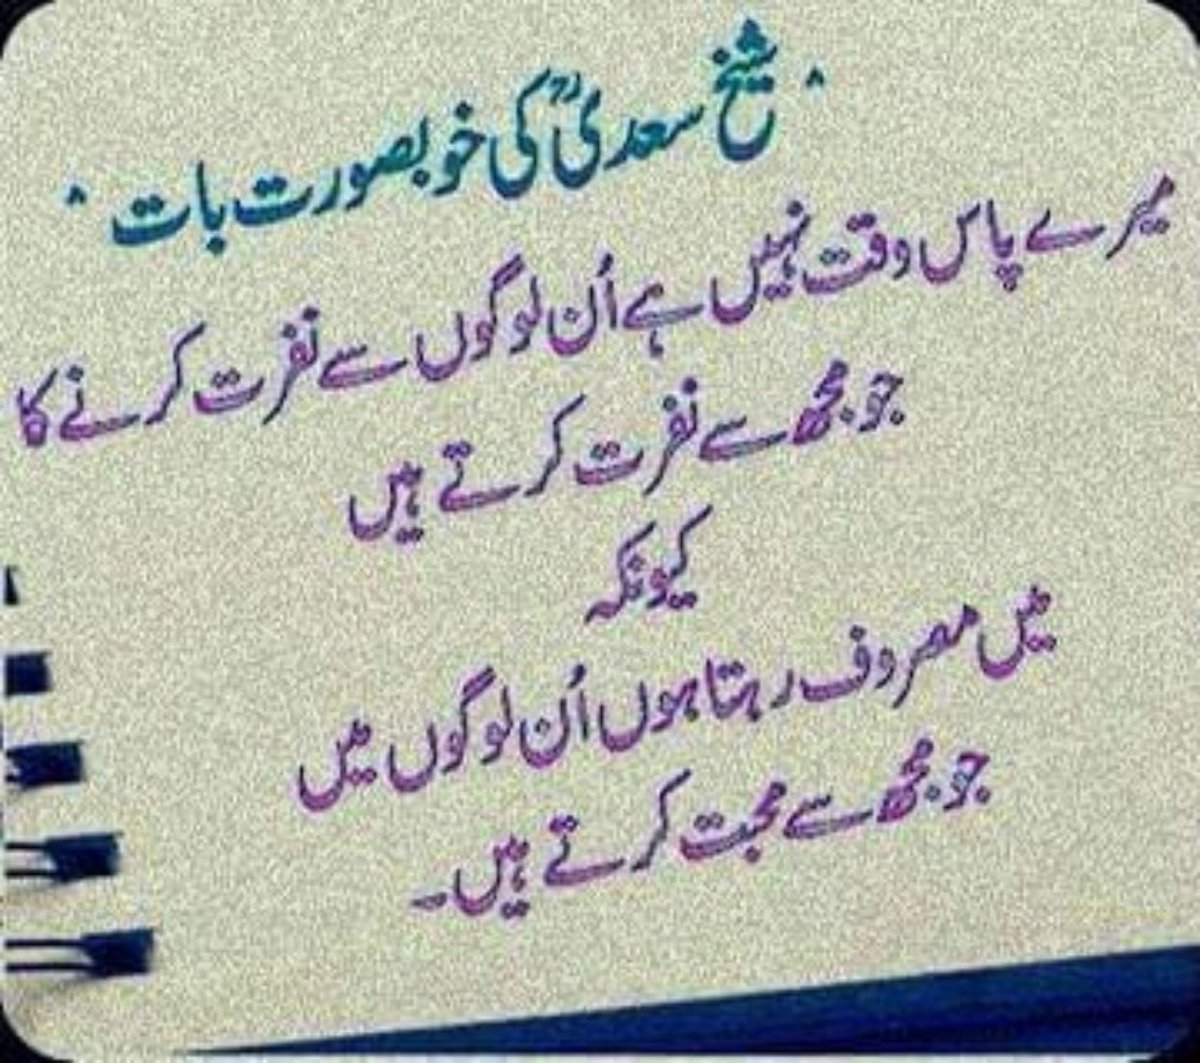 ' شیخ سعدیؒ کی خوبصورت بات '
میرے پاس وقت نہیں ہے اُن لوگوں سے نفرت کرنے کا
جو مجھ سے نفرت کرتے ہیں
کیونکہ
میں مصروف رہتا ہوں اُن لوگوں میں
جو مجھ سے محبت کرتے ہیں۔